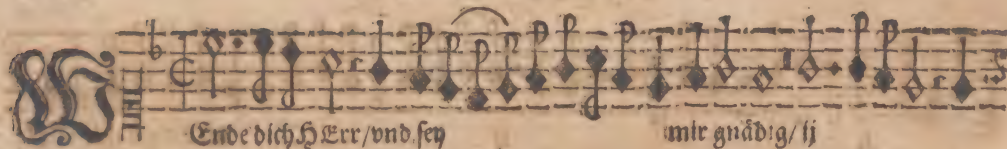 WEnde dich HErr/vnd sey mir gnädig/ ij